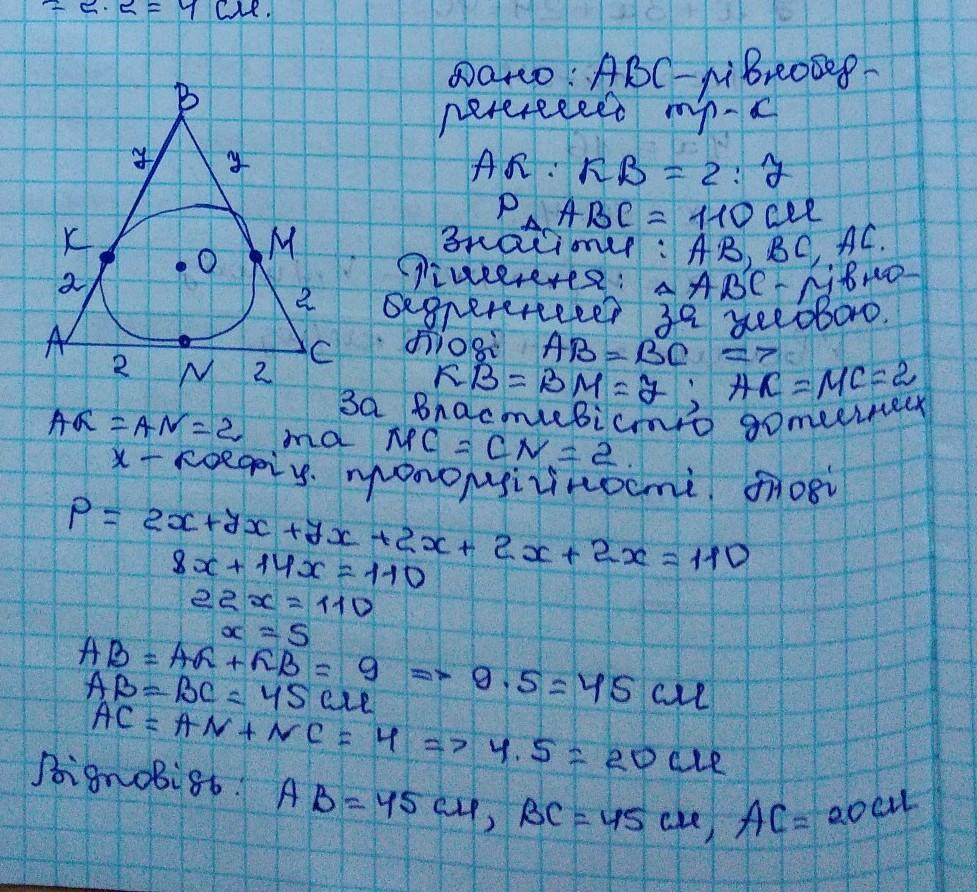 = 2 · 2 = 4 см.
Дано: ABC – рівнобед-
ренний тр-к
AK : KB = 2 : 7
P△ ABC = 110 см
Знайти: AB, BC, AC.
Рішення: △ ABC – рівно-
бедренний за умовою.
Тоді AB = BC =>
KB = BM = 7 ; AK = MC = 2
За властивістю дотичних
AK = AN = 2 та MC = CN = 2.
x – коефіц. пропорційності. Тоді
P = 2x + 7x + 7x + 2x + 2x + 2x = 110
8x + 14x = 110
22x = 110
x = 5
AB = AK + KB = 9 => 9 · 5 = 45 см
AB = BC = 45 см
AC = AN + NC = 4 => 4 · 5 = 20 см
Відповідь: AB = 45 см, BC = 45 см, AC = 20 см
B
7 7
K M
O
2 2
A C
2 N 2